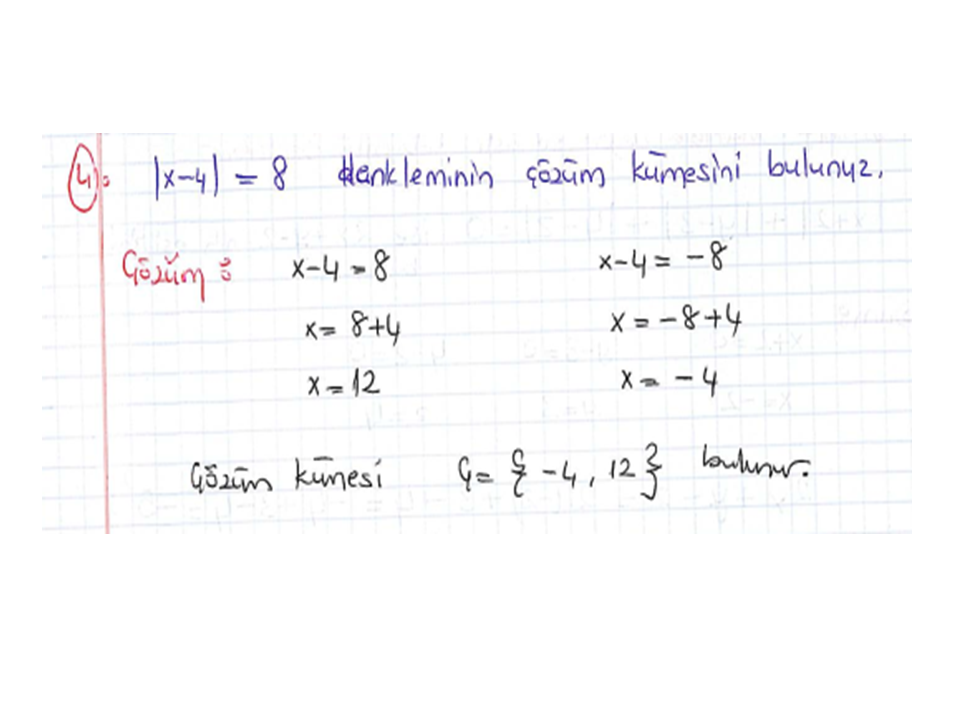 4). |x-4| = 8 denkleminin çözüm kümesini bulunuz.
Çözüm : x-4=8 x-4 = -8
x= 8+4 x = -8+4
x=12 x = -4
Çözüm kümesi Ç= { -4, 12 } bulunur.